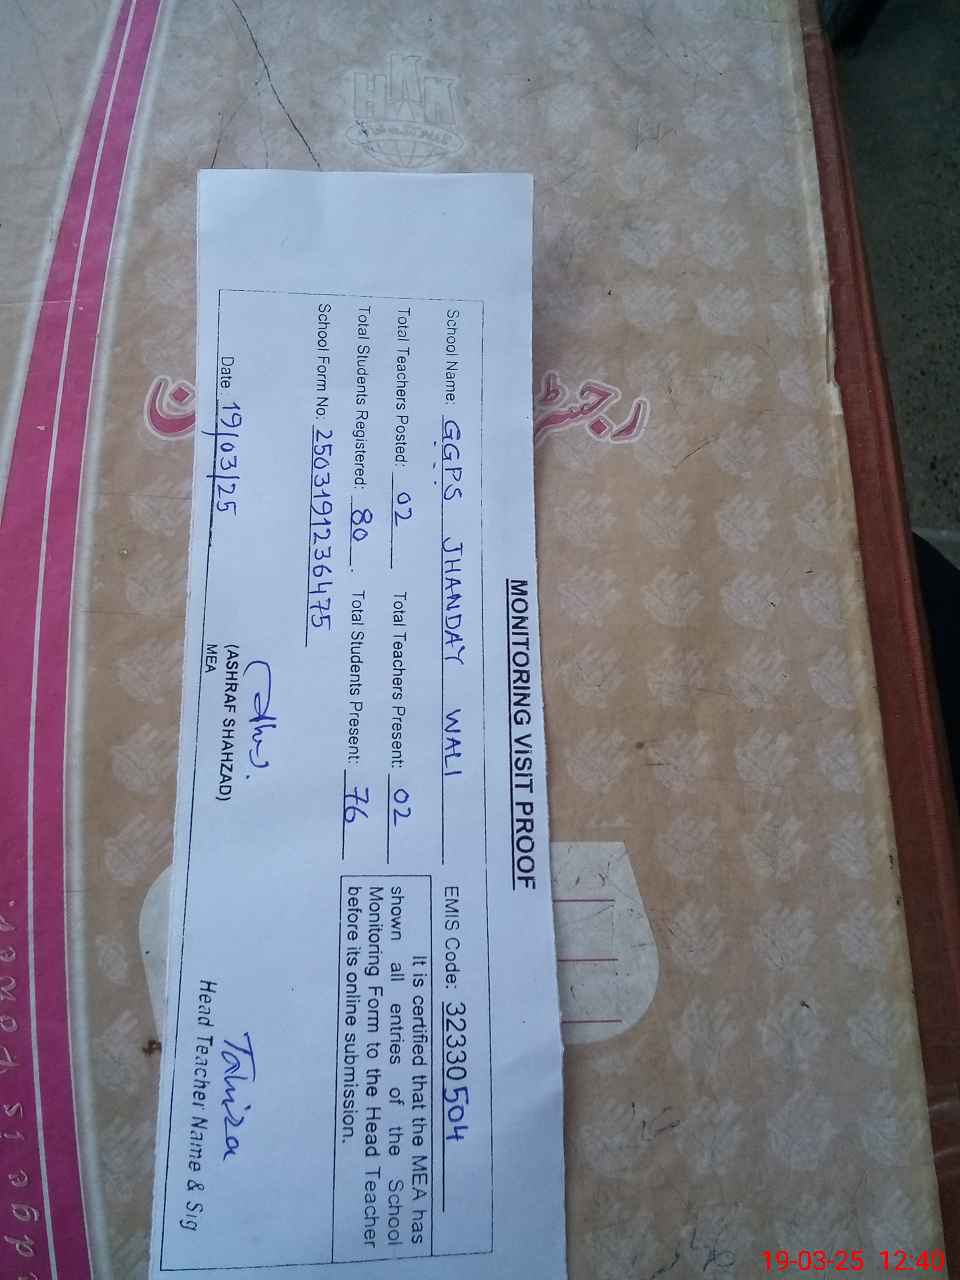 MONITORING VISIT PROOF
School Name: GGPS JHANDAY WALI EMIS Code: 32330504
Total Teachers Posted: 02 Total Teachers Present: 02
Total Students Registered: 80. Total Students Present: 76
School Form No: 2503191236475
It is certified that the MEA has
shown all entries of the School
Monitoring Form to the Head Teacher
before its online submission.
Date: 19/03/25
(ASHRAF SHAHZAD)
MEA
Tahira
Head Teacher Name & Sig
19-03-25 12:40